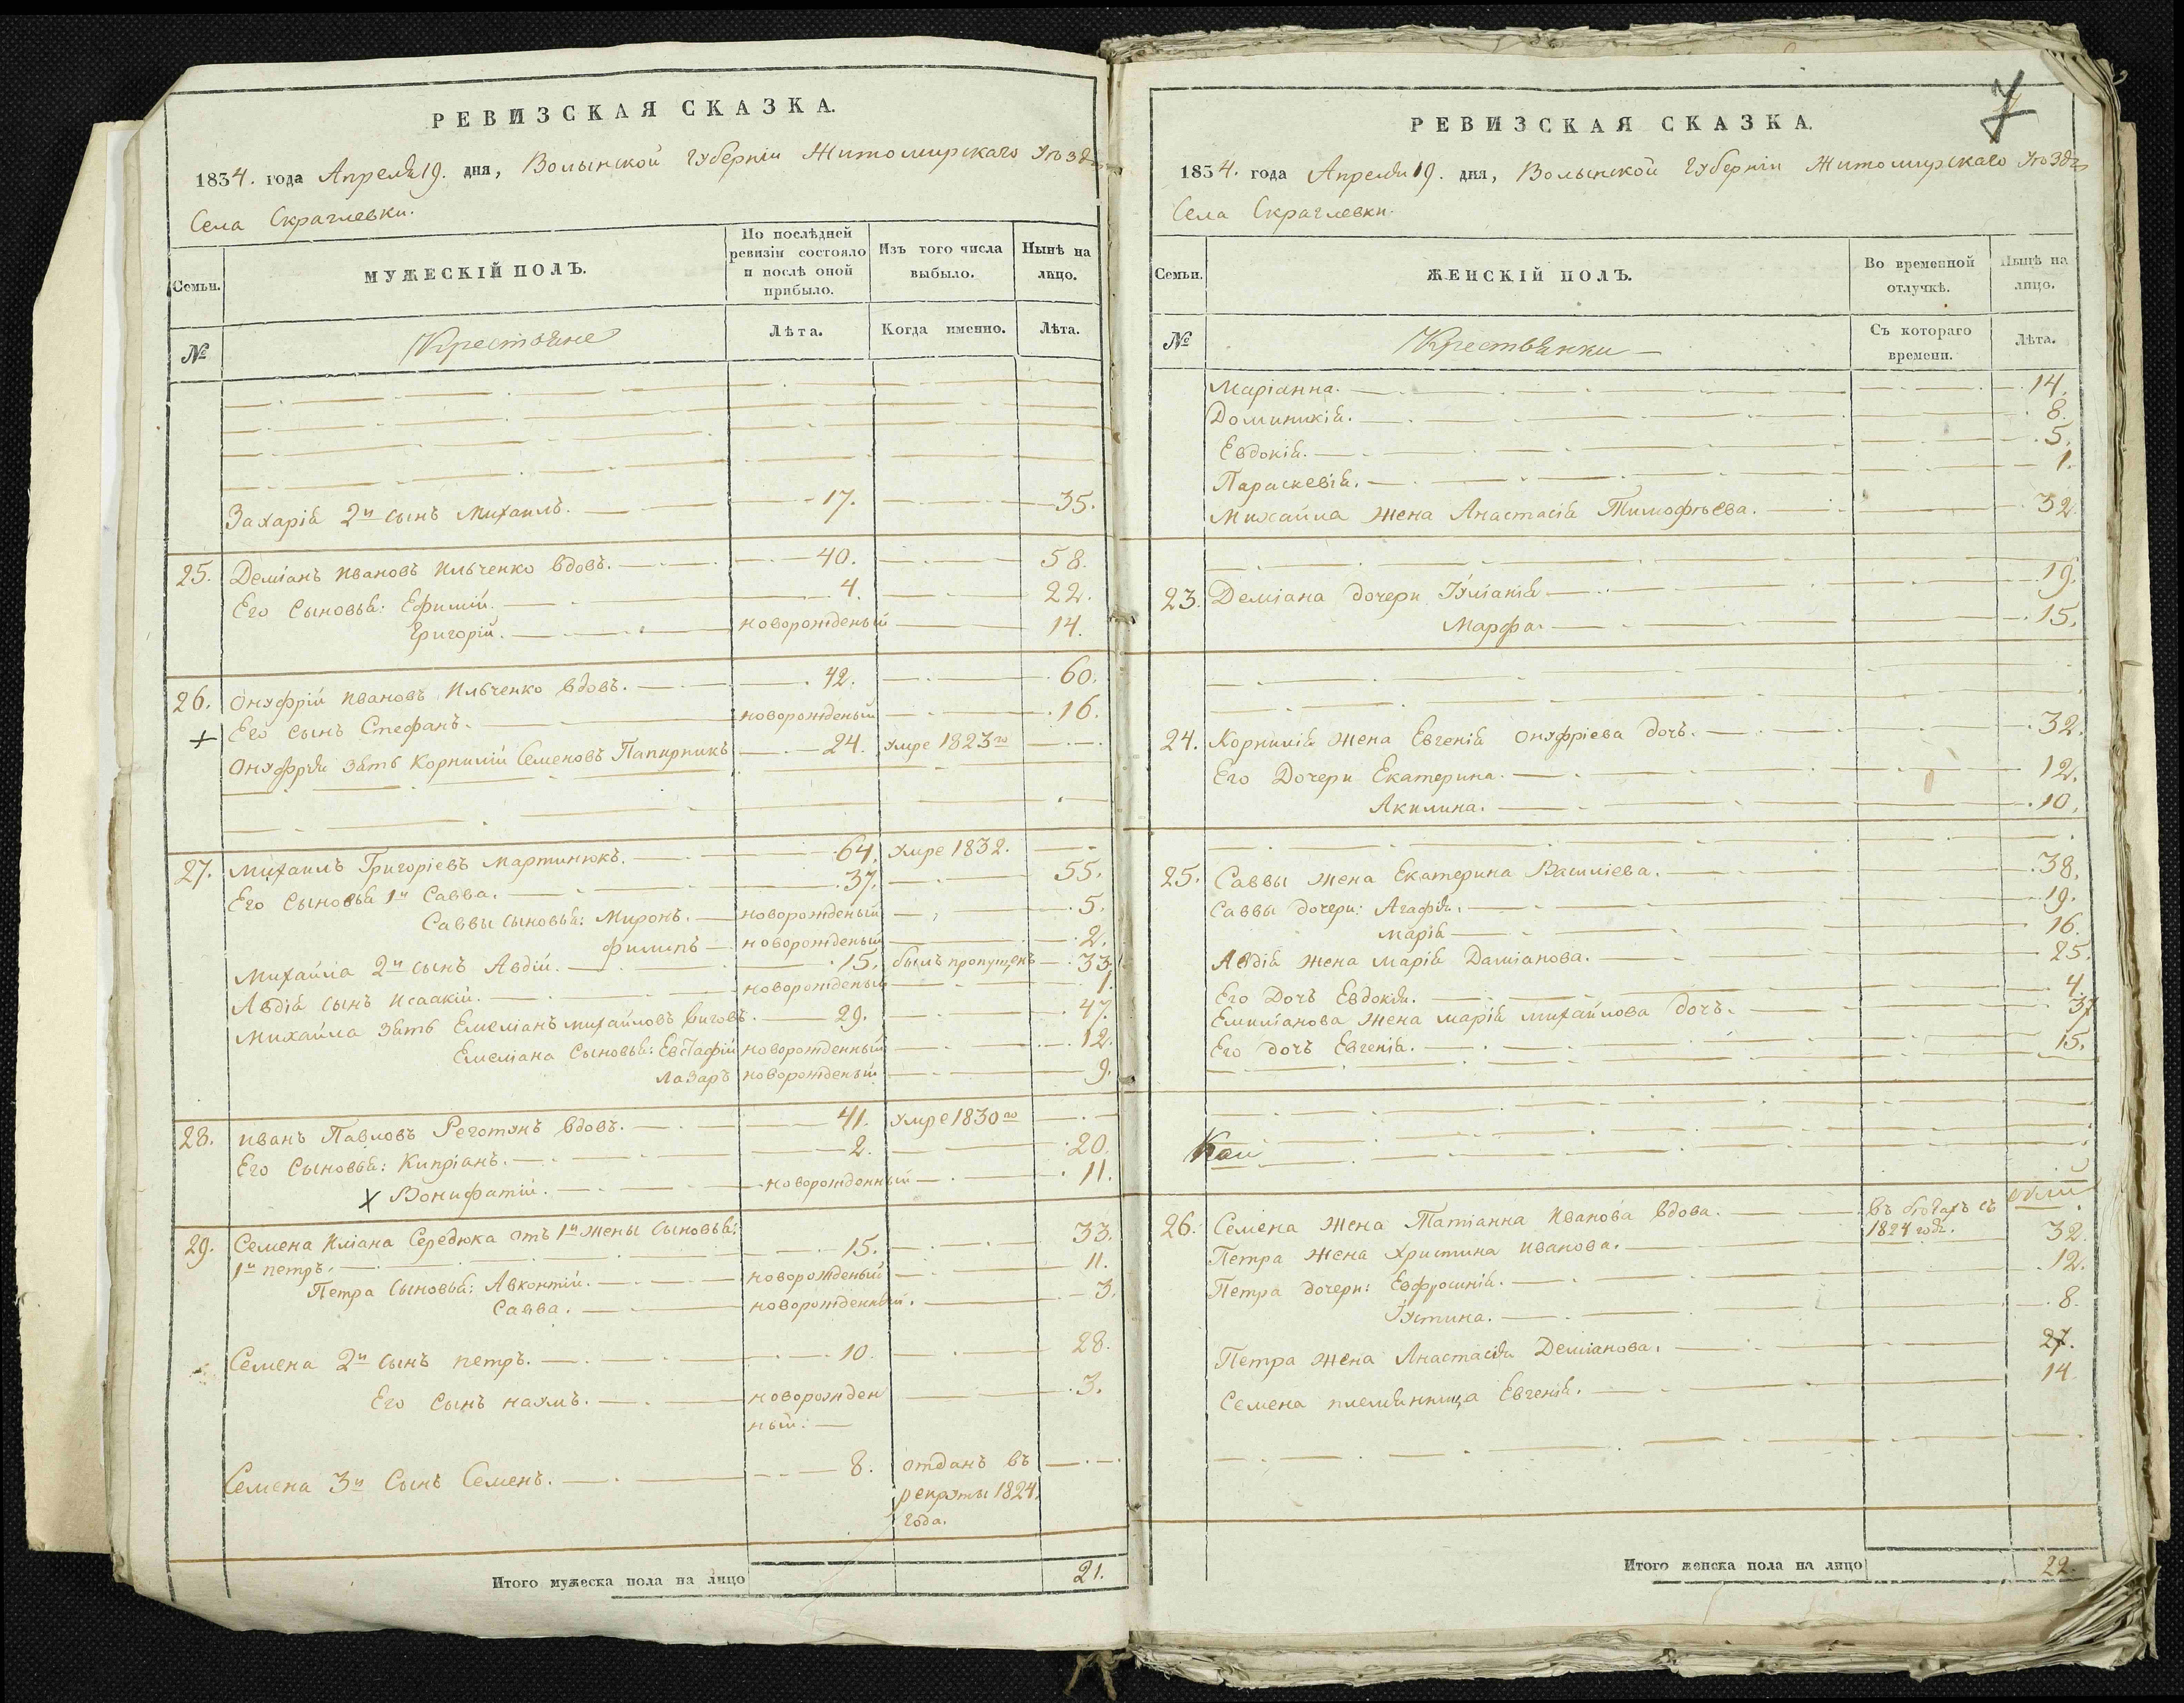 РЕВИЗСКАЯ СКАЗКА.
1834. года Апреля 19. дня, Волынской Губерніи Житомирскаго Уѣзда
Села Скраглевки.
Семьи.
МУЖЕСКІЙ ПОЛЪ.
По послѣдней ревизіи состояло и послѣ оной прибыло.
Изъ того числа выбыло.
Нынѣ на лицо.
№
Крестьяне
Лѣта.
Когда именно.
Лѣта.
Захарія 2й сынъ Михаилъ. 17. 35.
25. Деміанъ Ивановъ Ильченко вдовъ. 40. 58.
Его Сыновья: Ефимій. 4. 22.
Григорій. новорожденый 14.
26. Онуфрій Ивановъ Ильченко вдовъ. 42. 60.
Его сынъ Стефанъ. новорожденый 16.
Онуфрія зять Корнилій Семеновъ Папирникъ 24. умре 1823го
27. Михаилъ Григоріевъ Мартинюкъ. 64. умре 1832.
Его Сыновья 1й Савва. 37. 55.
Саввы сыновья: Миронъ. новорожденый 5.
Филипъ новорожденый 2.
Михайла 2й сынъ Авдій. 15. былъ пропущенъ 33
Авдія сынъ Исаакій. новорожденый 1.
Михайла зять Емеліанъ Михайловъ Виговъ. 29. 47.
Емеліана Сыновья: Евстафій новорожденный 12.
Лазаръ новорожденый 9.
28. Иванъ Павловъ Реготунъ вдовъ. 41. умре 1830го
Его Сыновья: Кипріанъ. 2. 20.
Х Вонифатій. новорожденный 11.
29. Семена Иліана Середюка отъ 1й жены сыновья:
1й петръ. 15. 33.
Петра Сыновья: Авконтій. новорожденый 11.
Савва. новорожденный. 3.
Семена 2й сынъ петръ. 10. 28.
Его Сынъ наумъ. новорожден 3.
ный.
Семена 3й Сынъ Семенъ. 8. отданъ въ
рекруты 1824.
года.
Итого мужеска пола на лицо 21.
7
РЕВИЗСКАЯ СКАЗКА.
1834. года Апреля 19. дня, Волынской Губерніи Житомирскаго Уѣзда
Села Скраглевки.
Семьи.
ЖЕНСКІЙ ПОЛЪ.
Во временной отлучкѣ.
Нынѣ на лицо.
№
Крестьянки
Съ котораго времени.
Лѣта.
Маріанна. 14.
Доминикія. 8.
Евдокія. 5.
Параскевія. 1.
Михайла жена Анастасія Тимофѣева. 32.
23. Деміана дочери Іуліанія 19.
Марфа. 15.
24. Корнилія жена Евгенія Онуфріева дочь. 32.
Его Дочери Екатерина. 12.
Акилина. 10.
25. Саввы жена Екатерина Василіева. 38.
Саввы дочери: Агафія. 19.
Марія 16.
Авдія жена Марія Даміанова. 25.
Его Дочъ Евдокія. 4.
Емиліанова жена марія михайлова дочъ. 37
Его дочъ Евгенія. 15.
26. Семена жена Татіанна Иванова вдова. въ бѣгахъ съ
1824 года.
Петра жена Христина Иванова. 32.
Петра дочери: Евфросинія. 12.
Іустина. 8.
Петра жена Анастасія Деміанова. 27.
Семена племянница Евгенія. 14
Итого женска пола на лицо 22.